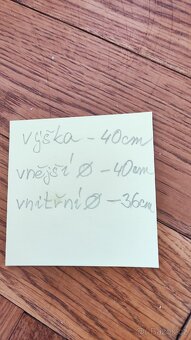 výška - 40cm
vnější Ø - 40cm
vnitřní Ø - 36cm